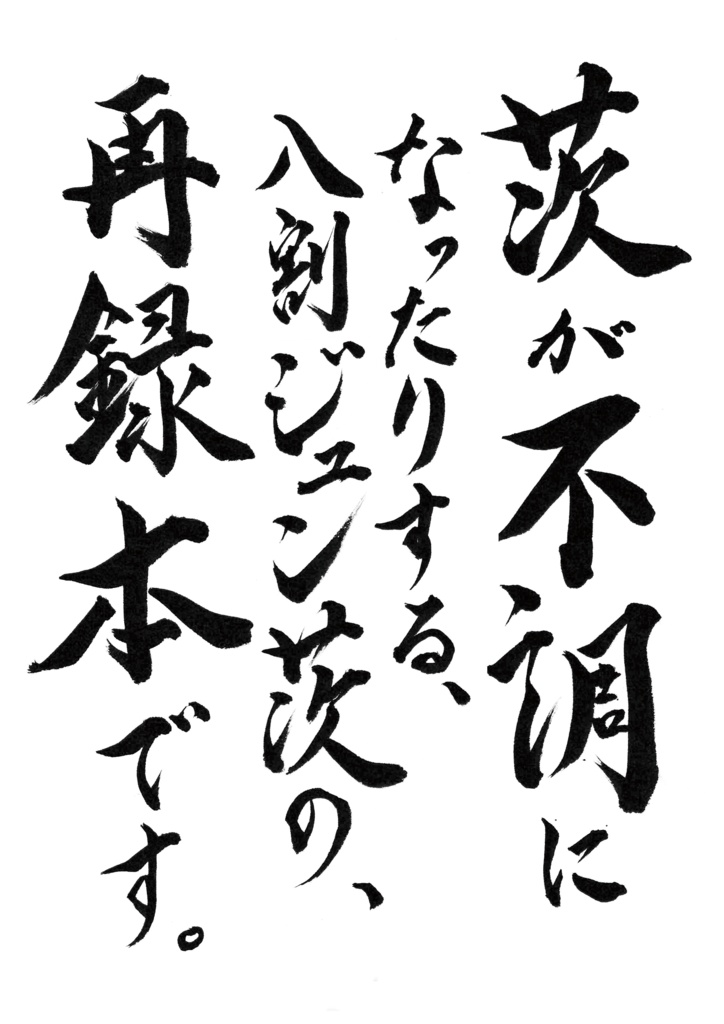 茨が不調に
なったりする、
八割ジュン茨の、
再録本です。